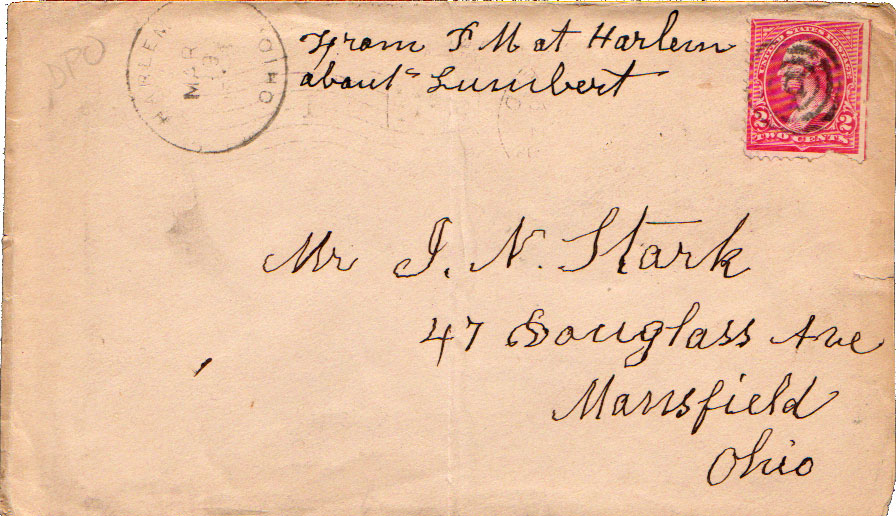 From P M at Harlem
about Lumbert
HARLEM
OHIO
MAR
UNITED STATES POSTAGE
2 2
TWO CENTS
Mr J. N. Stark
47 Douglass Ave
Mansfield
Ohio